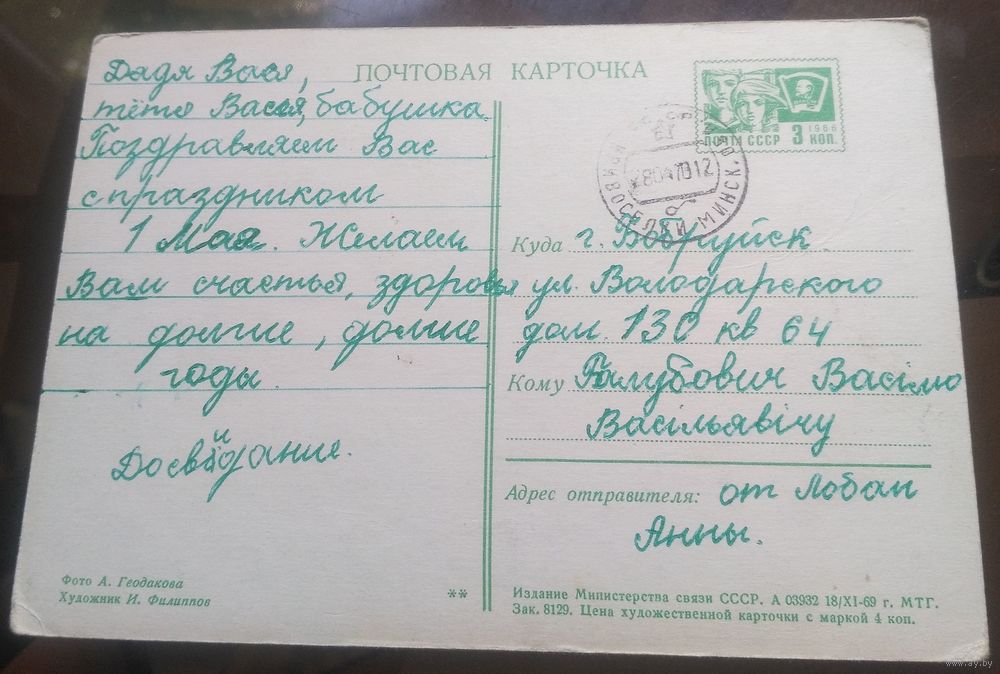 ПОЧТОВАЯ КАРТОЧКА
Дядя Вася,
тётя Васея, бабушка.
Поздравляем Вас
с праздником
1 Мая. Желаем
Вам счастья, здоровья
на долгие, долгие
годы.
Досвидания.
Фото А. Геодакова
Художник И. Филиппов
**
1966
ПОЧТА СССР 3 КОП.
280470 12
НОВОСЕЛКИ МИНСК.
Куда г. Бобруйск
ул. Володарского
дом. 130 кв 64
Кому Галубович Васілю
Васільявічу
Адрес отправителя: от Лобан
Анны.
Издание Министерства связи СССР. А 03932 18/XI-69 г. МТГ.
Зак. 8129. Цена художественной карточки с маркой 4 коп.
www.ay.by